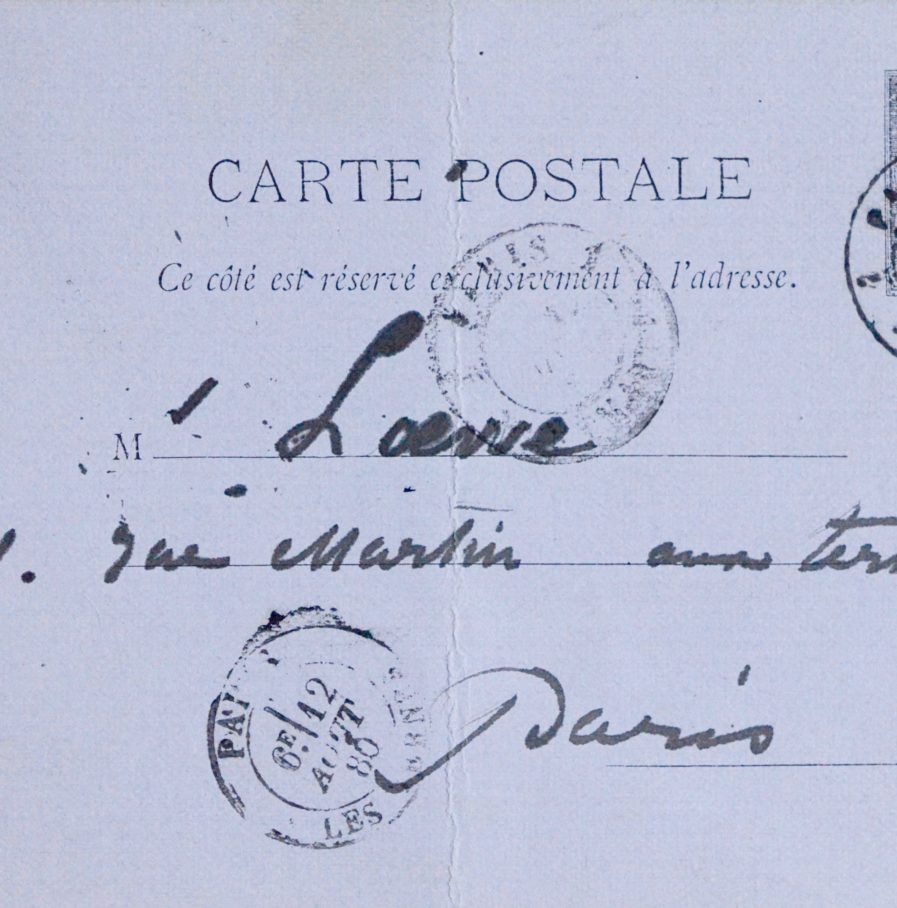 CARTE POSTALE
Ce côté est réservé exclusivement à l'adresse.
M Loewe
rue Martin aux ter
Paris
PARIS
6E 12
AOUT
80
LES